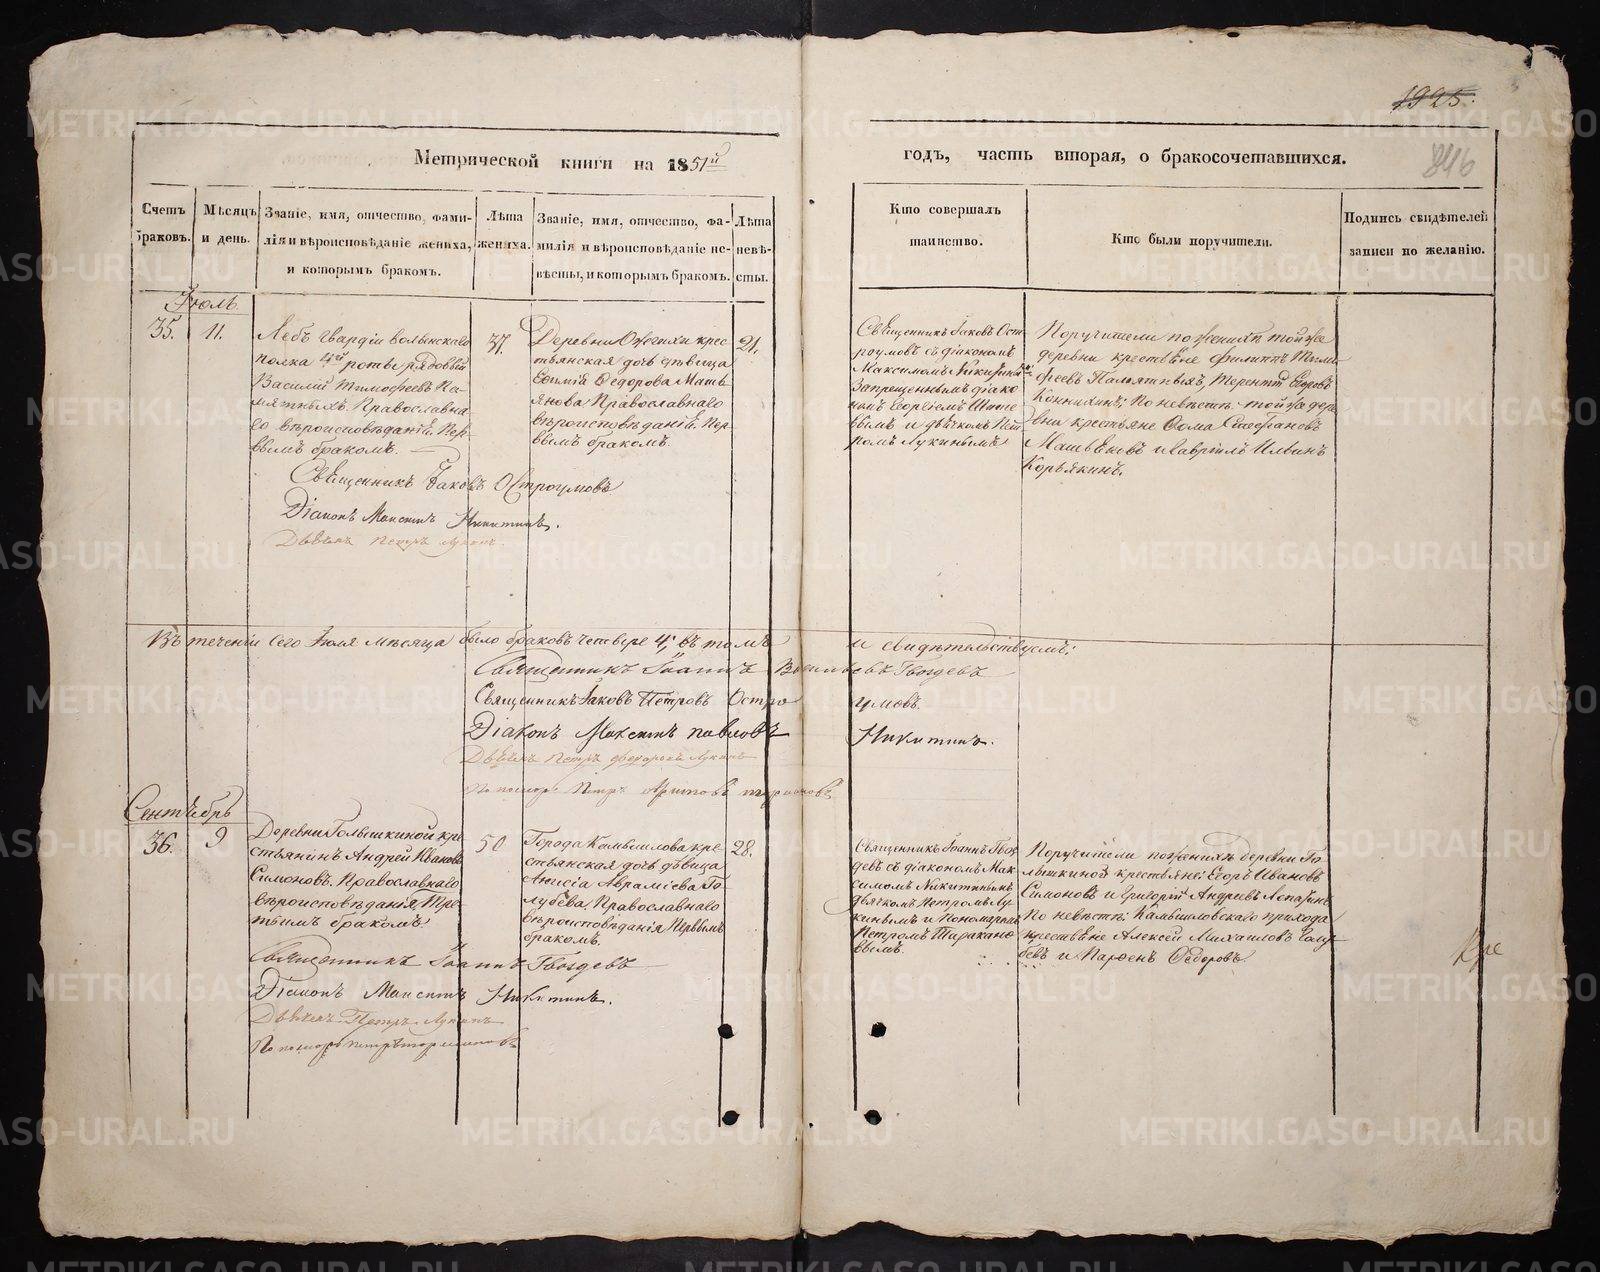 1925.
846
Метрической книги на 1851й
годъ, часть вторая, о бракосочетавшихся.
Счетъ браковъ.
Мѣсяцъ и день.
Званіе, имя, отчество, фами-
лія и вѣроисповѣданіе жениха,
и которымъ бракомъ.
Лѣта
жениха.
Званіе, имя, отчество, фа-
милія и вѣроисповѣданіе не-
вѣсты, и которымъ бракомъ.
Лѣта
невѣ-
сты.
Кто совершалъ
таинство.
Кто были поручители.
Подпись свидѣтелей
записи по желанію.
Іюль
35.
11.
Лебъ гвардіи волынскаго
полка 4й роты рядовый
Василій Тимофеевъ Па-
мятныхъ. Православна-
го вѣроисповѣданій. Пер-
вымъ бракомъ.
37.
Деревни крес
тьянская дочь дѣвица
Евфимія Федорова Мать
янова Православнаго
вѣроисповѣданій. Пер-
вымъ бракомъ.
21.
Священникъ Іаковъ Ост
роумовъ съ діакономъ
Максимомъ Никитинымъ
Запрещеннымъ діако
номъ Георгіемъ
вымъ и дьячкомъ Пет
ромъ Лукинымъ
Поручители по женихѣ той же
деревни крестьяне Филиппъ Тимо
феевъ Памятныхъ, Терентій Егоровъ
Конюхинъ; По невѣстѣ той же дер
вни крестьяне Фома Стефановъ
и Гаврілъ Ильинъ
Корякинъ.
Священникъ Іаковъ Остроумовъ
Діаконъ Максимъ Никитинъ.
Дьячекъ Петръ Лукинъ
Въ теченіи сего Іюля мѣсяца было браковъ четыре 4, въ томъ и свидѣтельствуемъ:
Священникъ Іоаннъ Васильевъ Гвоздевъ
Священникъ Іаковъ Петровъ Остроумовъ
Діаконъ Максимъ Павловъ Никитинъ.
Дьячекъ Петръ Федоровъ Лукинъ
Пономарь Петръ
Сентябрь
36.
9
Деревни Голышкиной кре
стьянинъ Андрей Ивановъ
Симоновъ. Православнаго
вѣроисповѣданія, Тре
тьимъ бракомъ.
50
Города Камышлова кре
стьянская дочь дѣвица
Анисія Аврамiева Го-
лубева. Православнаго
вѣроисповѣданія Первымъ
бракомъ.
28.
Священникъ Іоаннъ Гвоз
девъ съ діакономъ Мак
симомъ Никитинымъ
дьячкомъ Петромъ Лу
кинымъ и Пономаремъ
Петромъ Таракано
вымъ.
Поручители по женихѣ деревни Го
лышкиной крестьяне: Егоръ Ивановъ
Симоновъ и Григорій Андреевъ Лопатинъ
По невѣстѣ: Камышловскаго прихода
крестьяне Алексѣй Михаиловъ Голу-
бевъ и Парфенъ Федоровъ
Священникъ Іоаннъ Гвоздевъ
Діаконъ Максимъ Никитинъ.
Дьячекъ Петръ Лукинъ
Пономарь Петръ Таракановъ
METRIKI.GASO-URAL.RU